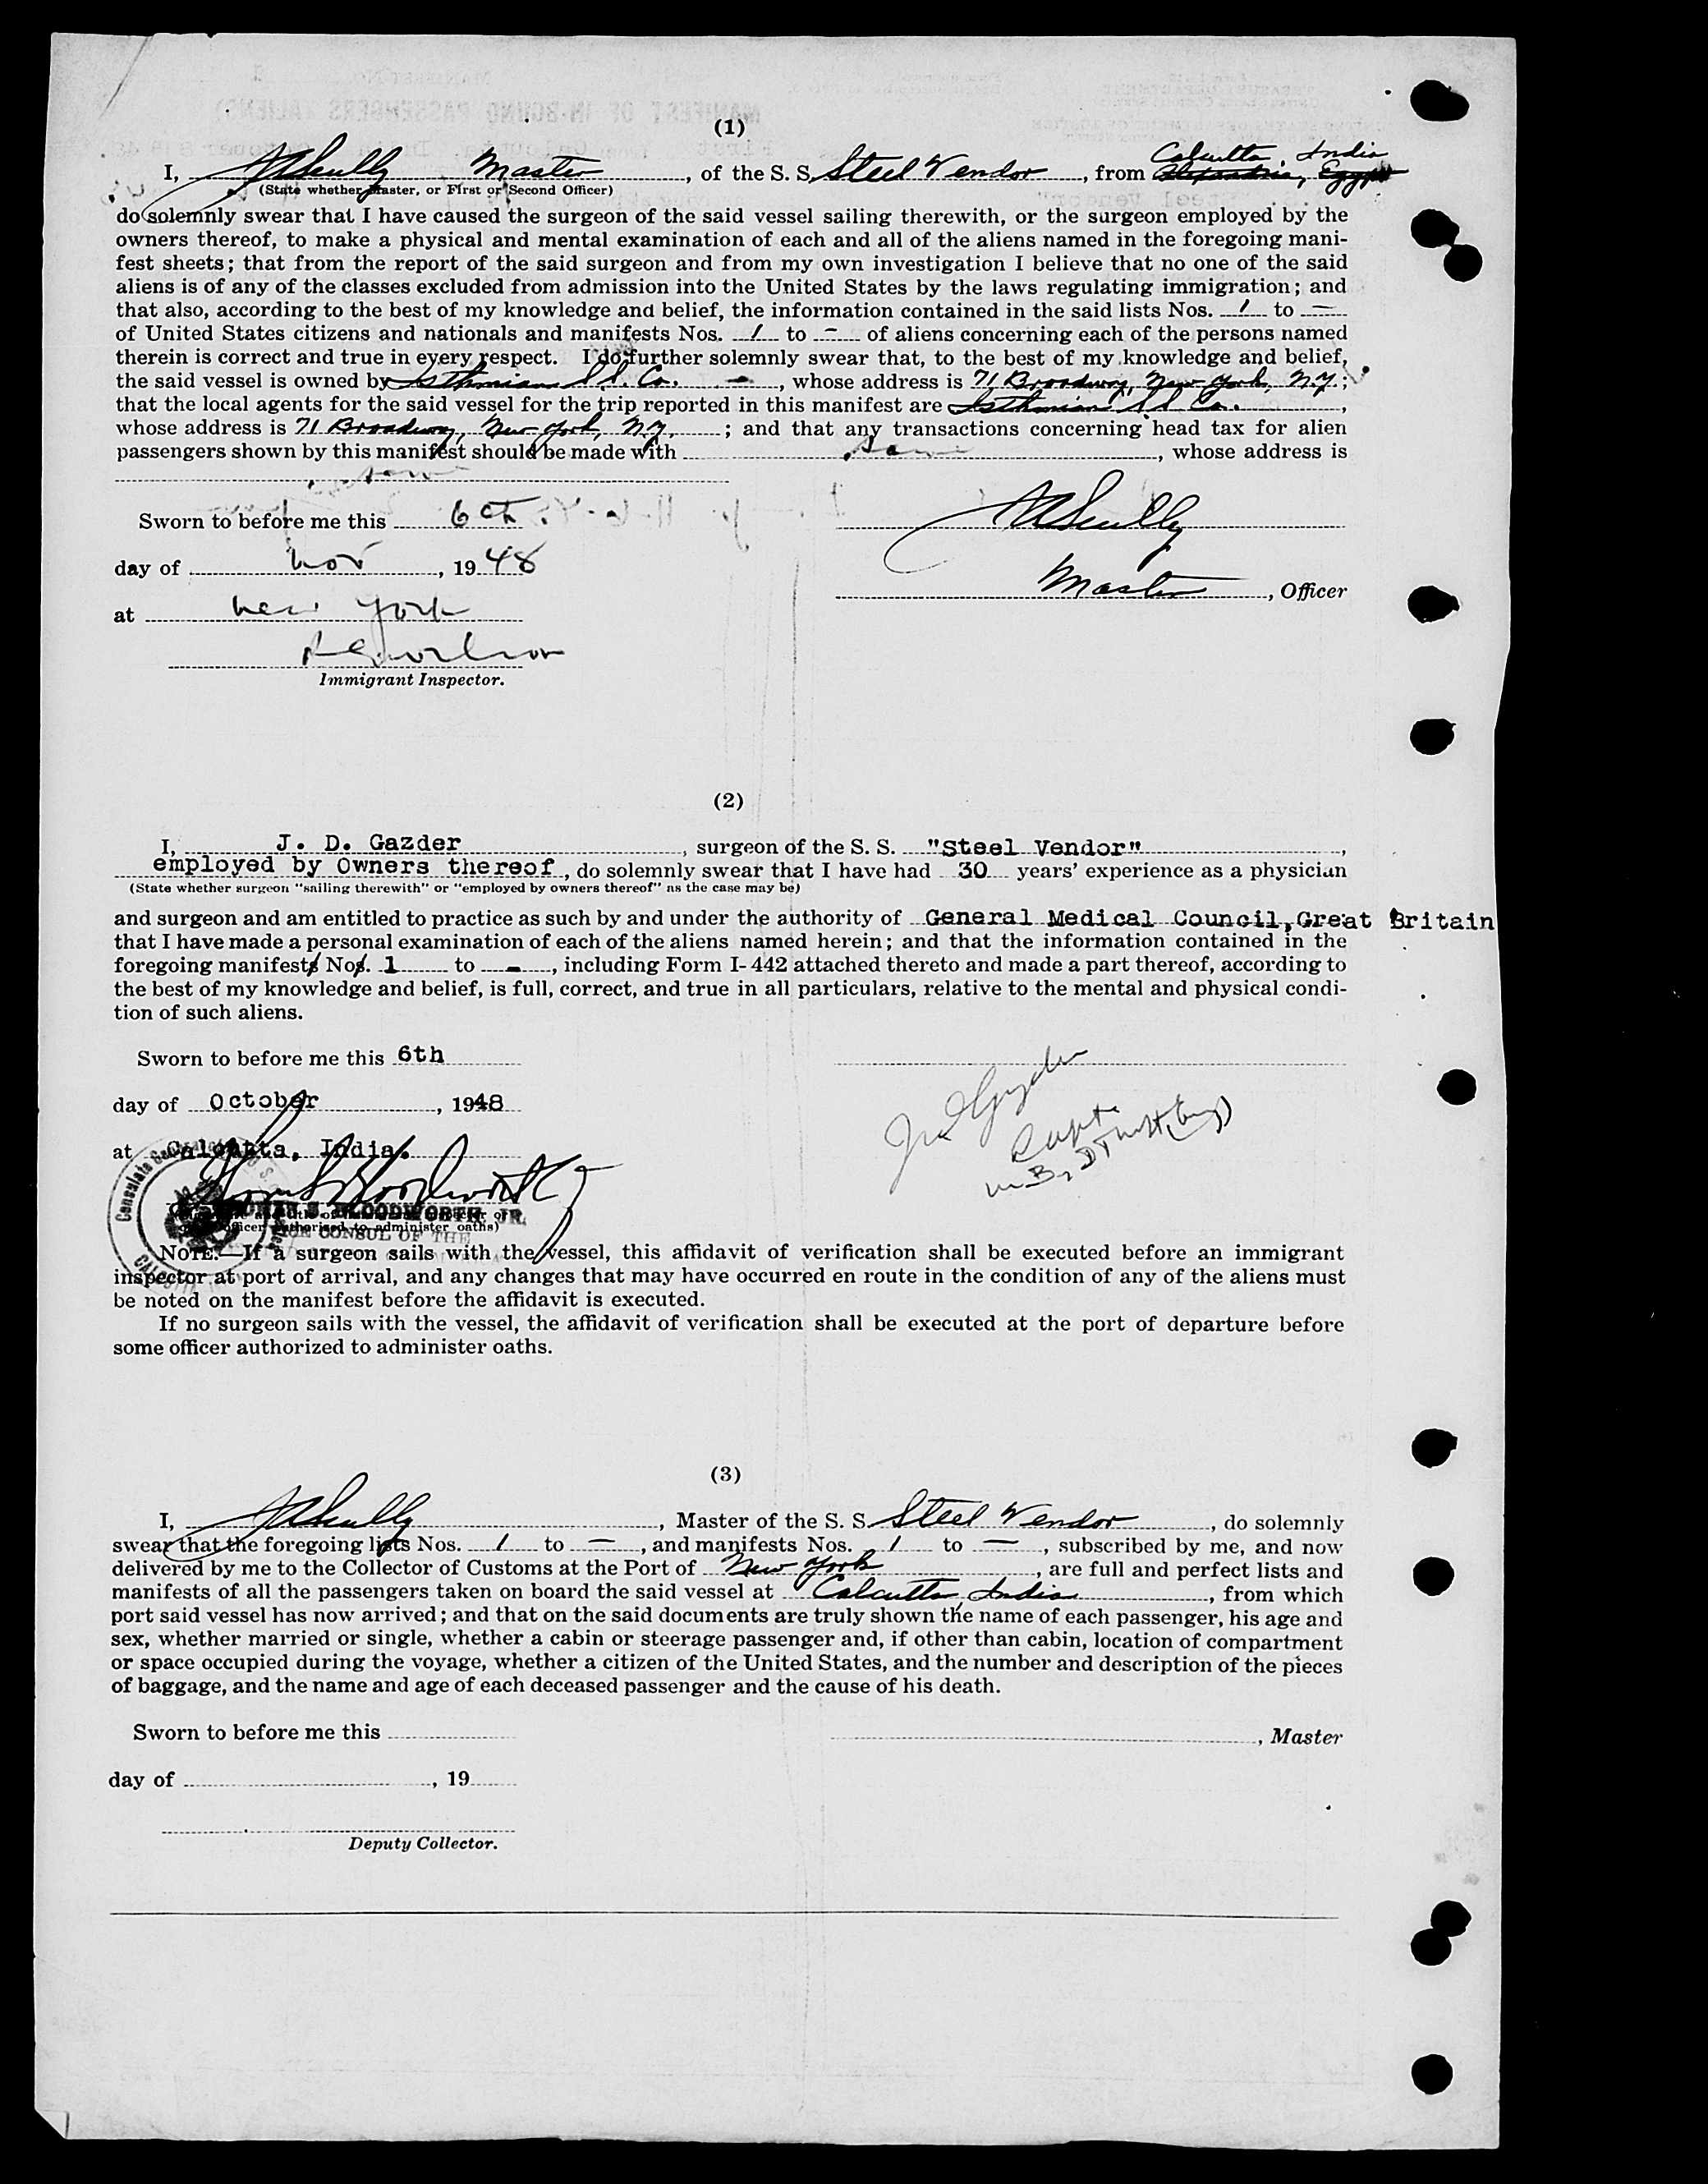 (1)
I, Scully Master, of the S. S. Steel Vendor, from Calcutta, India Alexandria, Egypt
(State whether Master, or First or Second Officer)
do solemnly swear that I have caused the surgeon of the said vessel sailing therewith, or the surgeon employed by the
owners thereof, to make a physical and mental examination of each and all of the aliens named in the foregoing mani-
fest sheets; that from the report of the said surgeon and from my own investigation I believe that no one of the said
aliens is of any of the classes excluded from admission into the United States by the laws regulating immigration; and
that also, according to the best of my knowledge and belief, the information contained in the said lists Nos. 1 to -
of United States citizens and nationals and manifests Nos. 1 to - of aliens concerning each of the persons named
therein is correct and true in every respect. I do further solemnly swear that, to the best of my knowledge and belief,
the said vessel is owned by Isthmian S.S. Co. -, whose address is 71 Broadway, New York, N.Y.;
that the local agents for the said vessel for the trip reported in this manifest are Isthmian S.S. Co.,
whose address is 71 Broadway, New York, N.Y.; and that any transactions concerning head tax for alien
passengers shown by this manifest should be made with same, whose address is
same
Sworn to before me this 6th
Scully
day of Nov, 1948
Master, Officer
at New York
Immigrant Inspector.
(2)
I, J. D. Gazder, surgeon of the S. S. "Steel Vendor",
employed by Owners thereof, do solemnly swear that I have had 30 years' experience as a physician
(State whether surgeon "sailing therewith" or "employed by owners thereof" as the case may be)
and surgeon and am entitled to practice as such by and under the authority of General Medical Council, Great Britain
that I have made a personal examination of each of the aliens named herein; and that the information contained in the
foregoing manifests Nos. 1 to -, including Form I-442 attached thereto and made a part thereof, according to
the best of my knowledge and belief, is full, correct, and true in all particulars, relative to the mental and physical condi-
tion of such aliens.
Sworn to before me this 6th
day of October, 1948
at Calcutta, India.
BLOODWORTH, JR.
officer authorized to administer oaths)
CONSUL OF THE
Consulate
NOTE.—If a surgeon sails with the vessel, this affidavit of verification shall be executed before an immigrant
inspector at port of arrival, and any changes that may have occurred en route in the condition of any of the aliens must
be noted on the manifest before the affidavit is executed.
If no surgeon sails with the vessel, the affidavit of verification shall be executed at the port of departure before
some officer authorized to administer oaths.
(3)
I, Scully, Master of the S. S. Steel Vendor, do solemnly
swear that the foregoing lists Nos. 1 to -, and manifests Nos. 1 to -, subscribed by me, and now
delivered by me to the Collector of Customs at the Port of New York, are full and perfect lists and
manifests of all the passengers taken on board the said vessel at Calcutta, India, from which
port said vessel has now arrived; and that on the said documents are truly shown the name of each passenger, his age and
sex, whether married or single, whether a cabin or steerage passenger and, if other than cabin, location of compartment
or space occupied during the voyage, whether a citizen of the United States, and the number and description of the pieces
of baggage, and the name and age of each deceased passenger and the cause of his death.
Sworn to before me this
, Master
day of , 19
Deputy Collector.